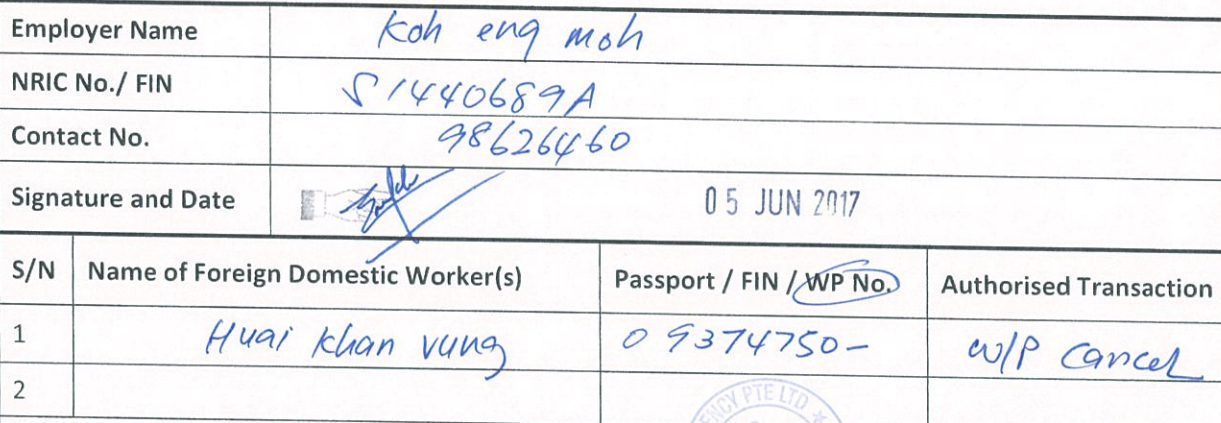 Employer Name Koh eng moh
NRIC No./ FIN S1440689A
Contact No. 98626460
Signature and Date 05 JUN 2017
S/N Name of Foreign Domestic Worker(s) Passport / FIN / WP No. Authorised Transaction
1 Huai Khan Vung 0 9374750- W/P Cancel
2
ENCY PTE LTD